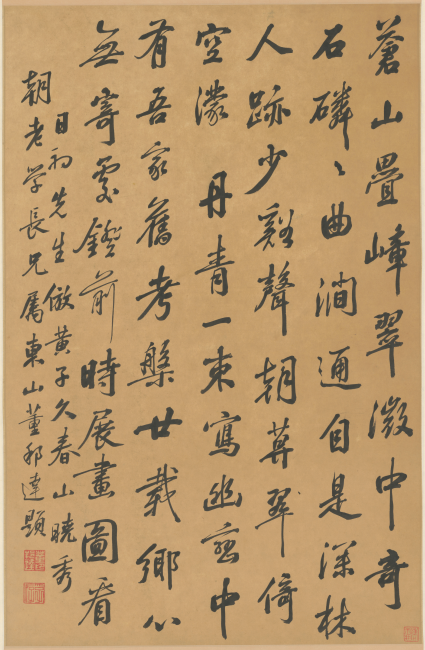 蒼山疊嶂翠微中奇
石磷〻曲澗通自是深林
人跡少谿聲朝莫翠倚
空濛 丹青一束寫幽巒中
有吾家舊考槃廿載鄉心
無寄處鐙前時展畫圖看
日初先生倣黃子久春山曉秀
朝老学長兄屬東山董邦達題